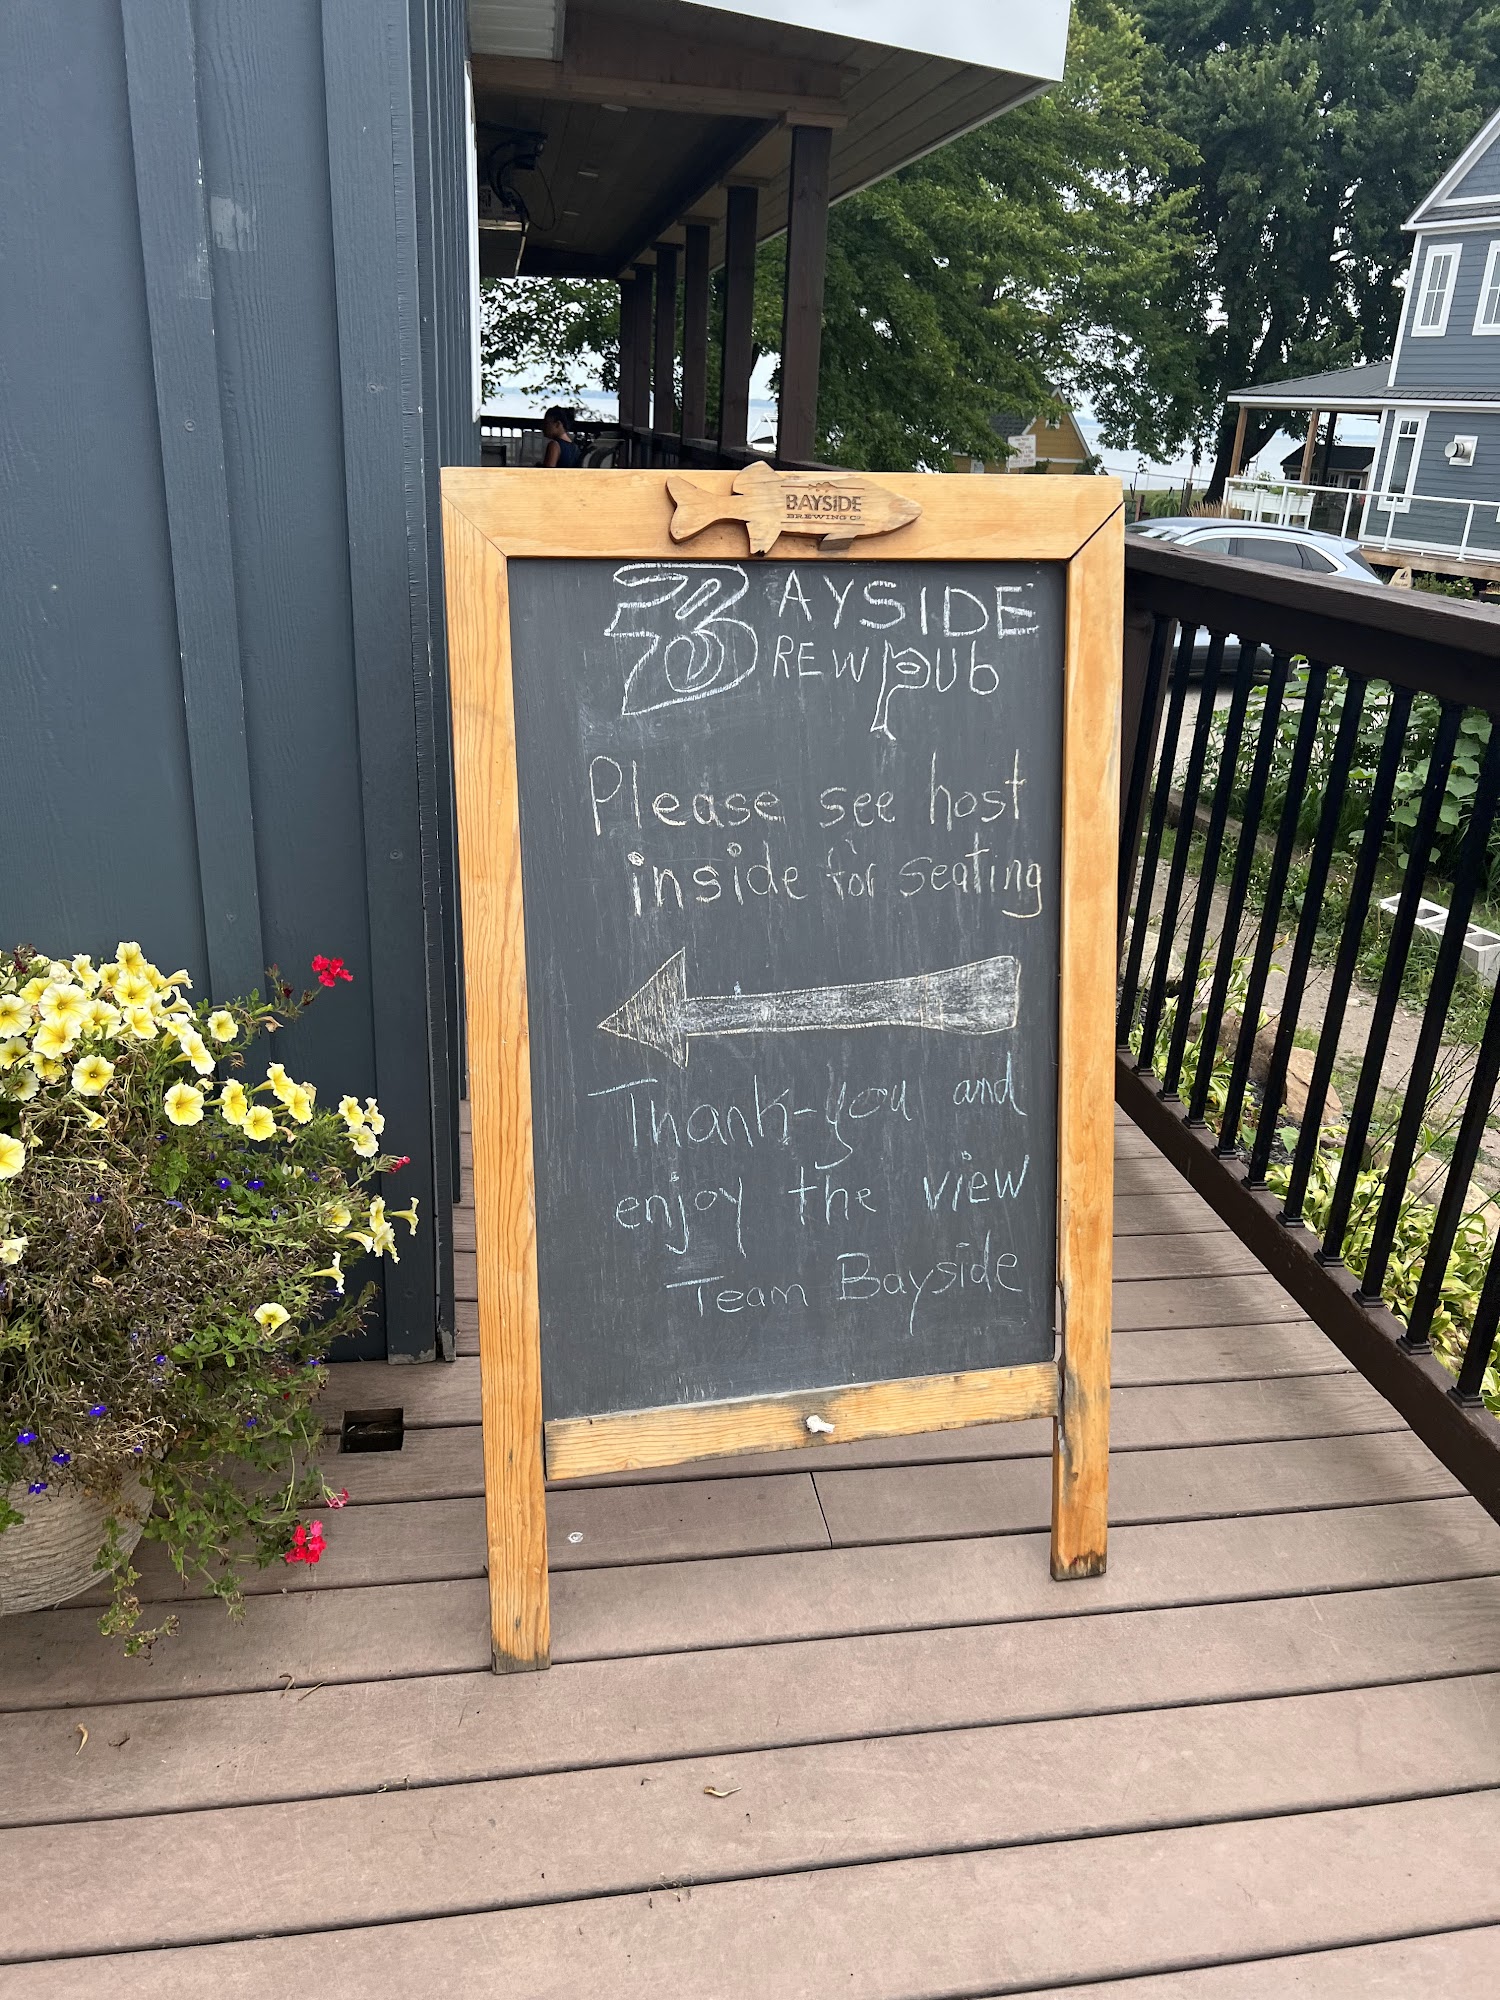 BAYSIDE
BREWING Co
BAYSIDE
BREWpub
Please see host
inside for seating
Thank-you and
enjoy the view
Team Bayside